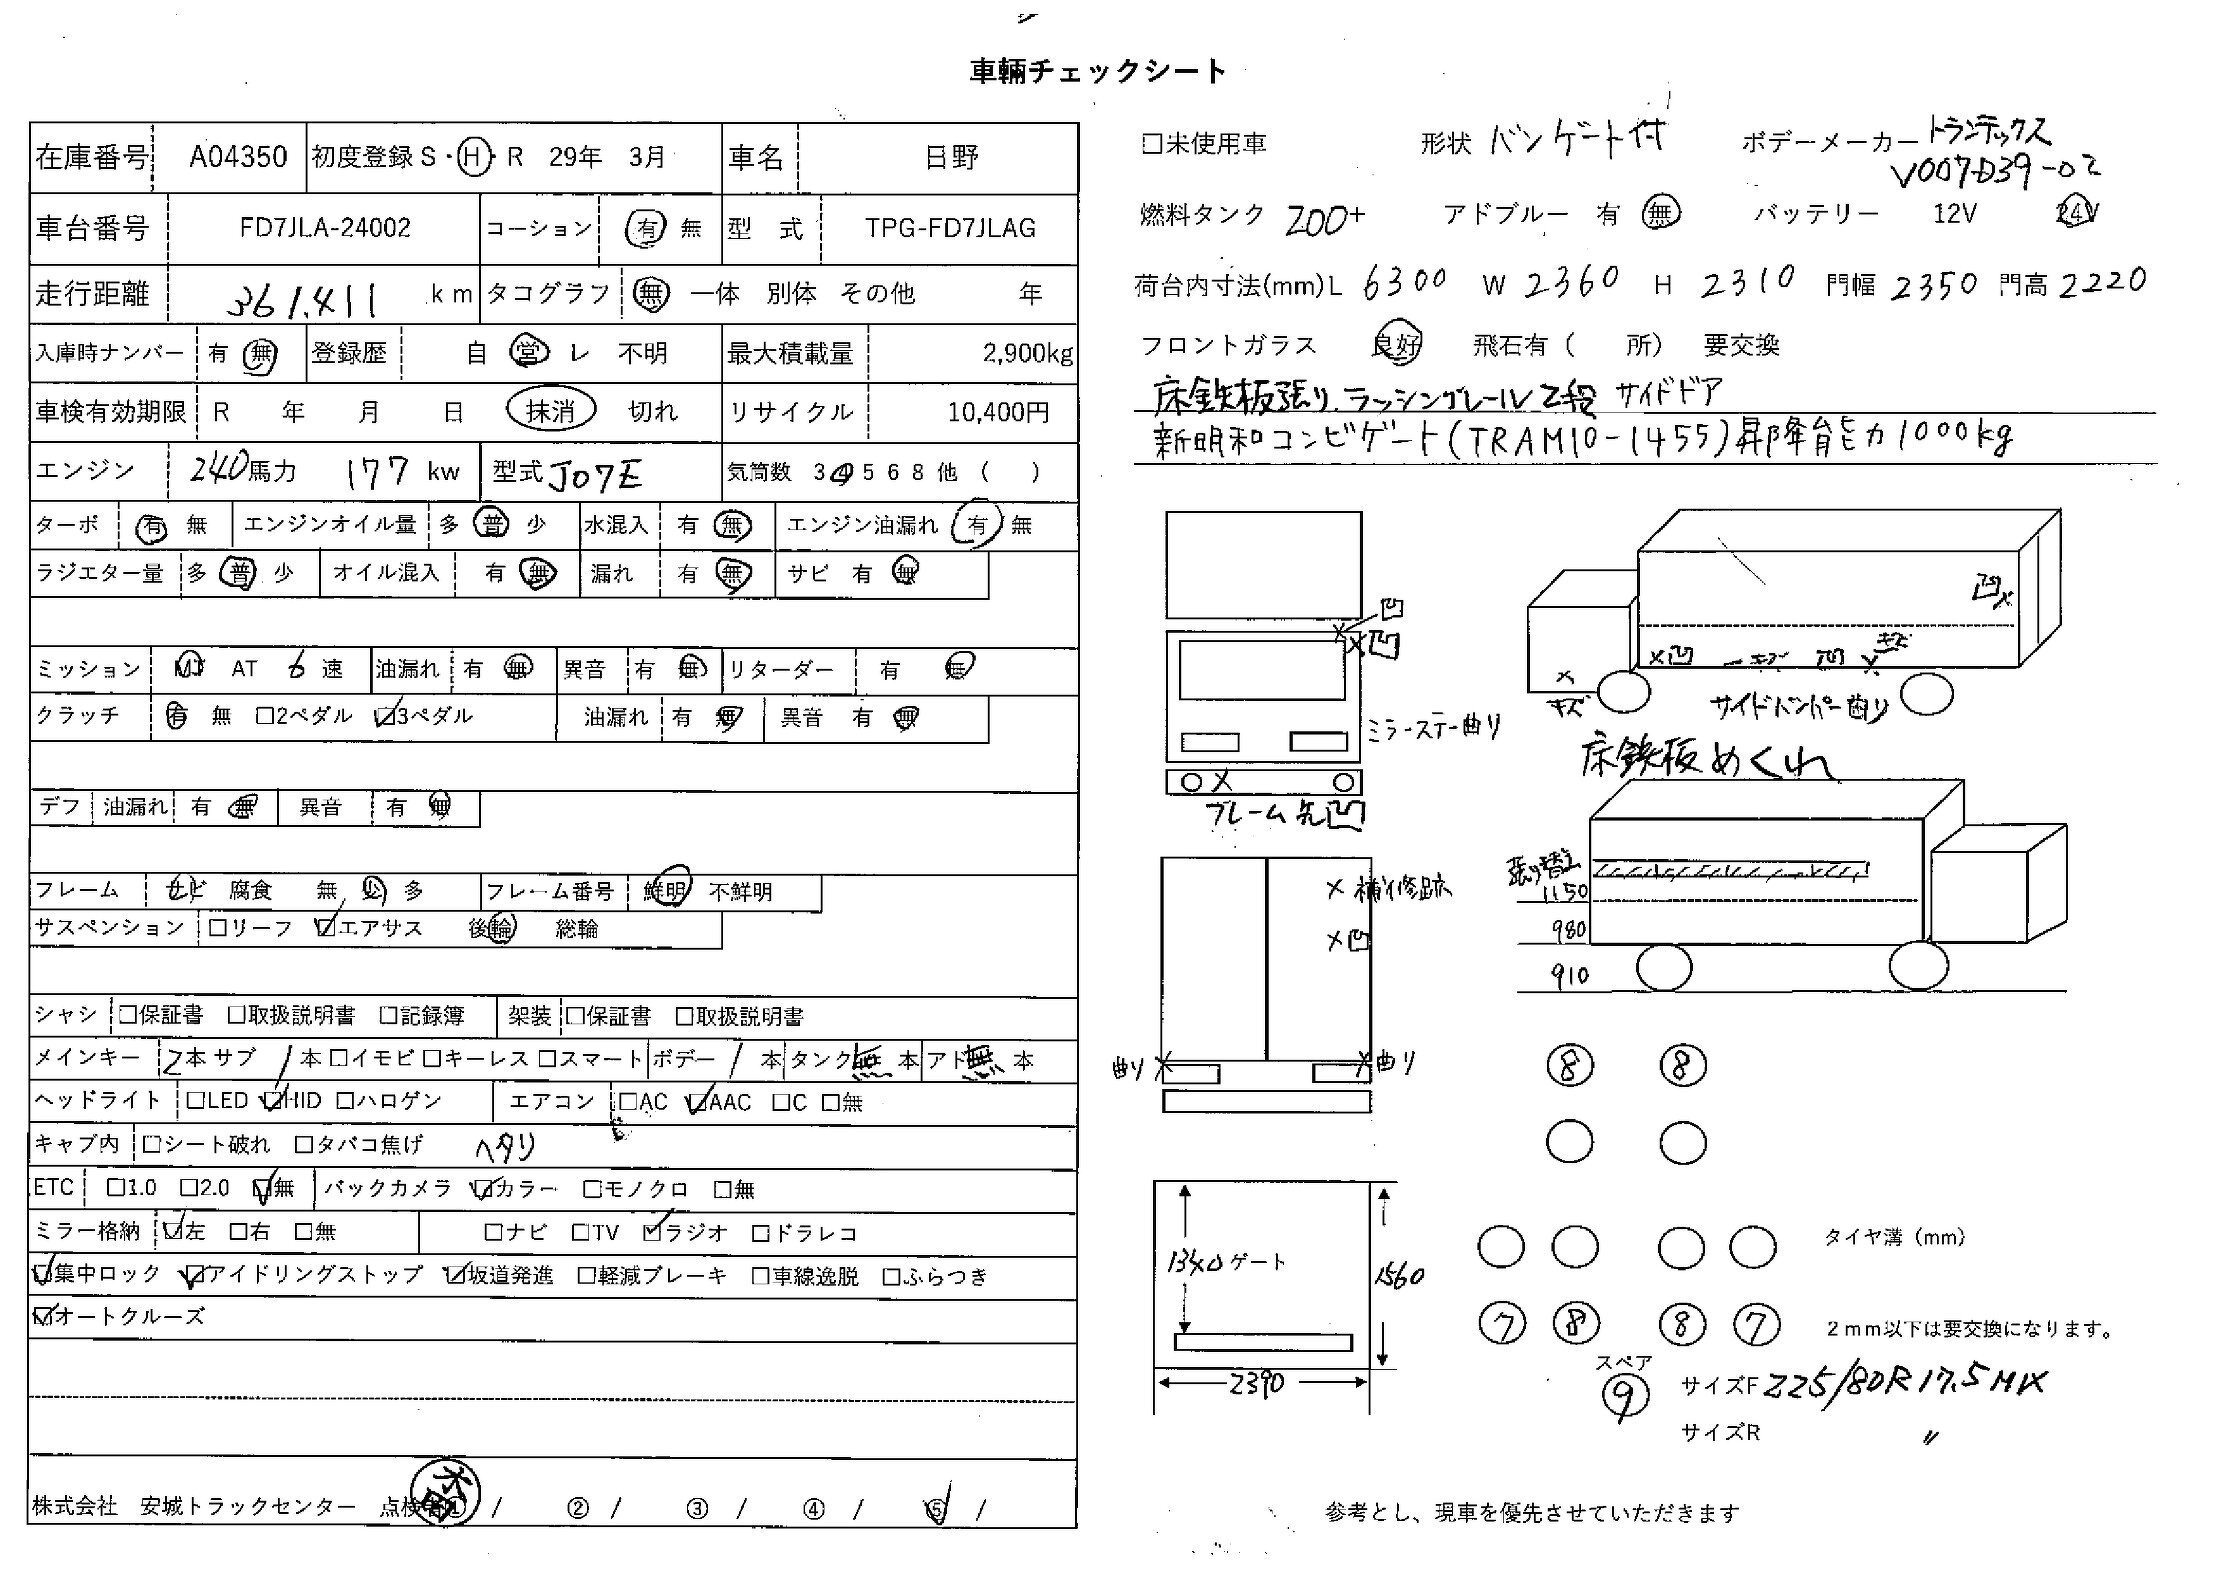 車輛チェックシート
在庫番号 A04350 初度登録 S・H・R 29年 3月 車名 日野
車台番号 FD7JLA-24002 コーション 有 無 型 式 TPG-FD7JLAG
走行距離 361,411 km タコグラフ 無 一体 別体 その他 年
入庫時ナンバー 有 無 登録歴 自 営 レ 不明 最大積載量 2,900kg
車検有効期限 R 年 月 日 抹消 切れ リサイクル 10,400円
エンジン 240馬力 177 kw 型式 J07E 気筒数 3 4 5 6 8 他 ( )
ターボ 有 無 エンジンオイル量 多 普 少 水混入 有 無 エンジン油漏れ 有 無
ラジエター量 多 普 少 オイル混入 有 無 漏れ 有 無 サビ 有 無
ミッション MT AT 6 速 油漏れ 有 無 異音 有 無 リターダー 有 無
クラッチ 有 無 □2ペダル ☑3ペダル 油漏れ 有 無 異音 有 無
デフ 油漏れ 有 無 異音 有 無
フレーム サビ 腐食 無 少 多 フレーム番号 鮮明 不鮮明
サスペンション □リーフ ☑エアサス 後輪 総輪
シャシ □保証書 □取扱説明書 □記録簿 架装 □保証書 □取扱説明書
メインキー 2本 サブ 1本 □イモビ □キーレス □スマート ボデー 1本 タンク 無 本 アド 無 本
ヘッドライト □LED ☑HID □ハロゲン エアコン □AC ☑AAC □C □無
キャブ内 □シート破れ □タバコ焦げ ヘタリ
ETC □1.0 □2.0 ☑無 バックカメラ ☑カラー □モノクロ □無
ミラー格納 ☑左 □右 □無 □ナビ □TV ☑ラジオ □ドラレコ
☑集中ロック ☑アイドリングストップ ☑坂道発進 □軽減ブレーキ □車線逸脱 □ふらつき
☑オートクルーズ
株式会社 安城トラックセンター 点検者① / ② / ③ / ④ / ⑤ /
□未使用車 形状 バンゲート付 ボデーメーカー トランテックス
V007D39-02
燃料タンク 200+ アドブルー 有 無 バッテリー 12V 24V
荷台内寸法(mm) L 6300 W 2360 H 2310 門幅 2350 門高 2220
フロントガラス 良好 飛石有 ( 所) 要交換
床鉄板張り、ラッシングレール2段 サイドドア
新明和コンビゲート(TRAM10-1455)昇降能力1000kg
凹
×凹
ミラーステー曲り
フレーム先凹
凹×
×凹 キズ 凹 キズ
× キズ
サイドバンパー曲り
床鉄板めくれ
張り替え
1150
980
910
×補修跡
×凹
曲り× ×曲り
1340 ゲート
1560
2390
8 8
タイヤ溝（mm）
7 8 8 7
2mm以下は要交換になります。
スペア
9
サイズF 225/80R17.5 MIX
サイズR 〃
参考とし、現車を優先させていただきます